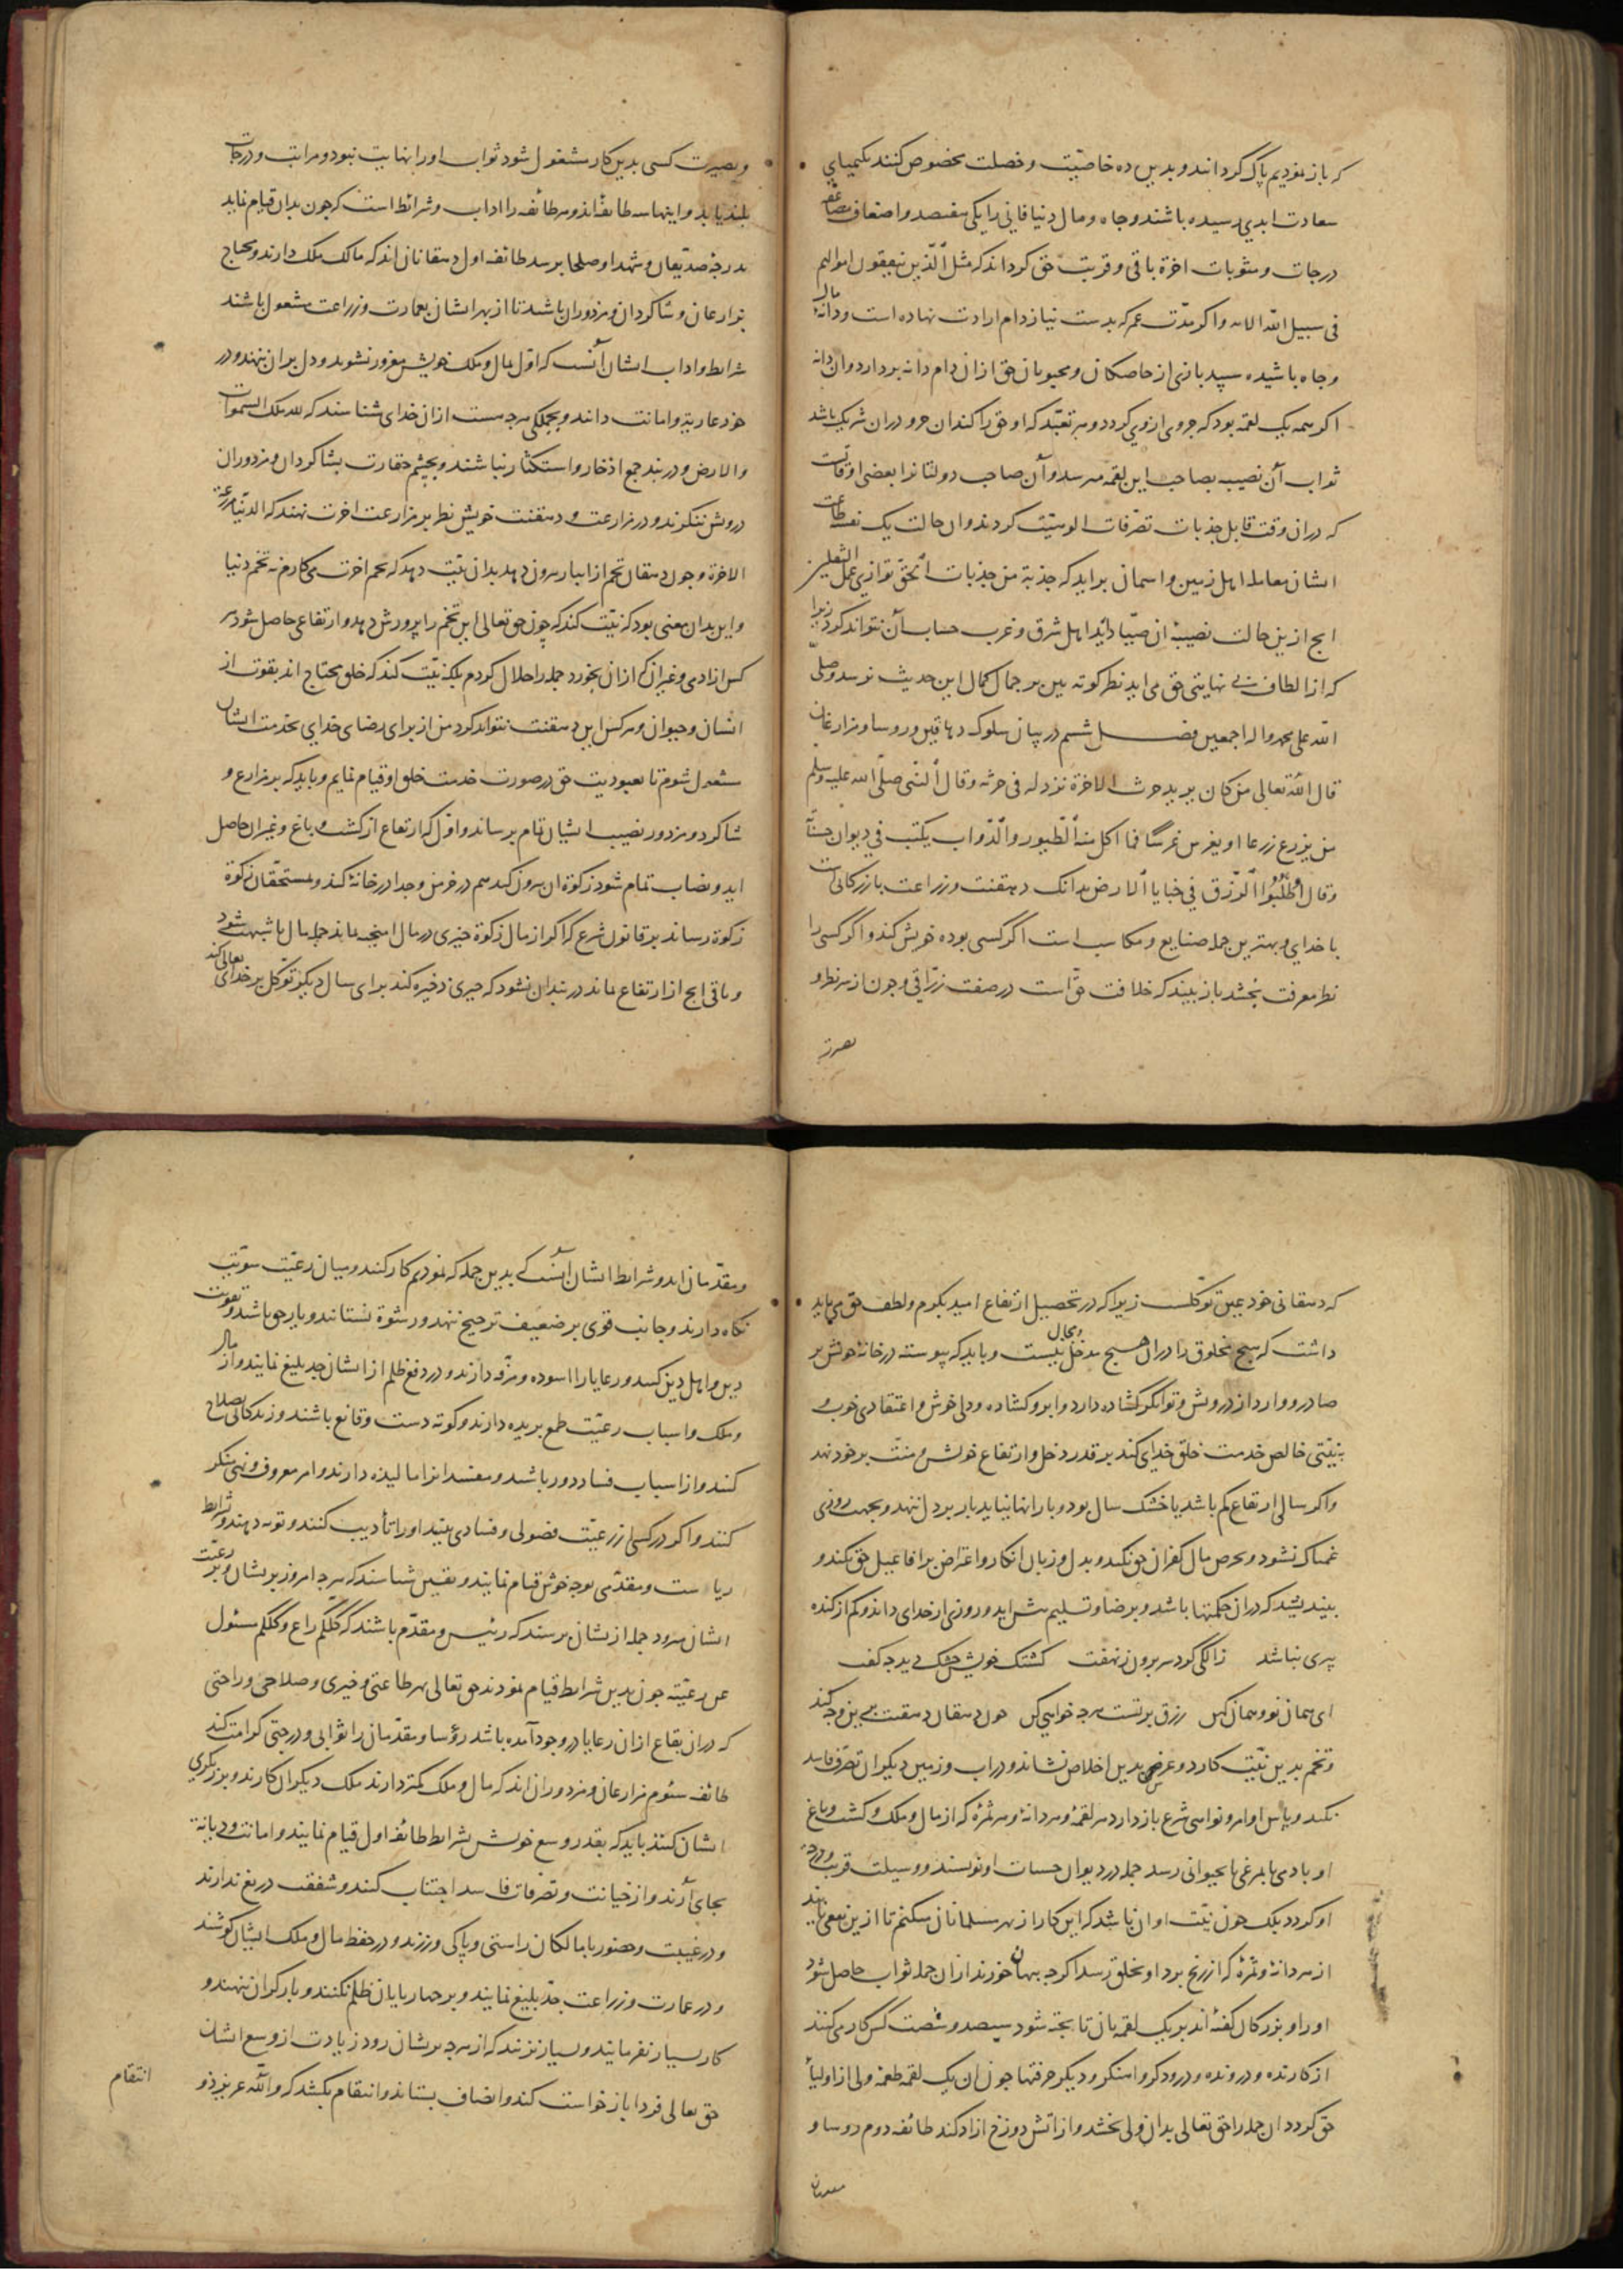 که باز نمودیم پاک گردانند و بدین ده خاصیّت و خصلت مخصوص کنند بکیمیای
سعادت ابدی رسیده باشند و جاه و مال دنیا فانی را یکی هفتصد و اضعاف مضاعف
درجات و مثوبات اخرة باقی و قربت حق کرداند که مثل الّذین ینفقون اموالهم
فی سبیل اللّه الایه و اکر مدّت عمر که بدست نیاز دام ارادت نهاده است و دانه مال
و جاه پاشیده سپید بازی از خاصکان و محبوبان حق ازان دام دانه بردارد و ان دانه
اکر همه یک لقمه بود که جزوی از وی کردد و هر تعبّد که او حق را کند ان جزو دران شریک باشد
ثواب آن نصیبه بصاحب این لقمه میرسد و آن صاحب دولتانرا بعضی اوقات
که دران وقت قابل جذبات تصّرفات الوهیّت کردند و ان حالت یک نفسه طاعت
ایشان بمعامله اهل زمین و اسمان براید که جذبة من جذبات الحّق توازی عمل الثقلین
انج ازین حالت نصیبه ان صیّاد آید اهل شرق و غرب حساب آن نتواند کرد زیرا
که از الطاف بی نهایتی حق می اید نظر کوته بین بر جمال کمال این حدیث نرسد و صلّی
اللّه علی محمد واله اجمعین فصل ششم در بیان سلوک دهاقین و روسا و مزارعان
قال اللّه تعالی من کان یرید حرث الاخرة نزد له فی حرثه و قال النّبی صلّی اللّه علیه وسلّم
من یزرع زرعا او یغرس غرسًا فما اکل منه الطّیور والدّواب یکتب فی دیوان حسناته
و قال اطلُبُوا الرّزق فی خبایا الارض بدانک دهقنت و زراعت بازرکانی است
با خدای و بهترین جمله صنایع و مکاسب است اکر کسی بوده خویش کند و اکر کسی را
نظر معرفت بخشد باز بیند که خلافت حّق است در صفت رزّاقی و جون از سر نظر و
بصیرت
و بصیرت کسی بدین کار مشغول شود ثواب او را نهایت نبود و مراتب و درجات
بلند یابد و اینها سه طائفه اند و هر طائفه را اداب و شرائط است که جون بدان قیام نماید
بدرجۀ صدّیقان و شهدا و صلحا برسد طائفه اول دهقانان اند که مالک ملک دارند و محتاج
بزارعان و شاکردان و مزدوران باشند تا از بهر ایشان بعمارت و زراعت مشغول باشند
شرایط و اداب ایشان آنست که اوّل بمال و ملک خویش مغرور نشوند و دل بران ننهند و در
خود عاریة و امانت دانند و بجملکی هرجه هست ازان خدای شناسند که لله ملک السّموات
والارض و در بند جمع اذخار و استکثار نباشند و بچشم حقارت بشاکردان و مزدوران
درویش ننکرند و در زراعت و دهقنت خویش نظر بر مزارعت اخرت نهند که الدّنیا مزرعة
الاخرة و جون دهقان تخم از انبار بیرون دهد بدان نیّت دهد که تخم اخرت می کارم نه تخم دنیا
و این بدان معنی بود که نیّت کند که چون حق تعالی این تخم را پرورش دهد و ارتفاعی حاصل شود هر
کس از ادمی و غیر ان که ازان بخورد جمله را حلال کردم بلکه نیّت کند که خلق محتاج اند بقوت از
انسان و حیوان و هر کس این دهقنت نتواند کرد من از برای رضای خدای بخدمت ایشان
مشغول شوم تا بعبودیت حق در صورت خدمت خلق او قیام نمایم و باید که بر مزارع و
شاکرد و مزدور نصیب ایشان تمام برساند و اوّل که ارتفاع از کشت و باغ و غیر ان حاصل
اید و نصاب تمام شود زکوة ان بیرون کند هم در خرمن و جدا در خانه کند و بمستحقّان زکوة
زکوة رساند بر قانون شرع که اکر از مال زکوة جیزی در مال امیخته بماند جمله مال با شبهت شود
و باقی انج از ارتفاع بماند در بند ان نشود که جیزی ذخیره کند برای سال دیکر توکّل بر خدای تعالی کند
که دهقانی خود عین توکّلست زیرا که در تحصیل ارتفاع امید بکرم و لطف حق می باید
داشت که هیج مخلوق را دران هیج مدخل و مجال نیست و باید که پیوسته در خانۀ خویش بر
صادر و وارد از درویش و توانکر کشاده دارد و ابرو کشاده و دلی خوش و اعتقادی خوب و
بنیّتی خالص خدمت خلق خدای کند بر قدر دخل و ارتفاع خویش و منّت بر خود نهد
و اکر سالی ارتفاع کم باشد یا خشک سال بود و بارانها نیاید بار بر دل ننهد و بجهت روزی
غمناک نشود و بحرص مال کفران حق نکند و بدل و زبان انکار و اعتراض بر افاعیل حق نکند و
بیندیشد که دران حکمتها باشد و برضا و تسلیم پیش اید و روزی از خدای داند و کم از کنده
پیری نباشد زالکی کرد سر برون ز نهفت کشتک خویش خشک دید جه کفت
ای همان نو و همان کهن رزق بر تست هرجه خواهی کن جون دهقان دهقنت برین وجه کند
و تخم بدین نیّت کارد و غرس بدین اخلاص نشاند و در اب و زمین دیکران تصرّف فاسد
نکند و پاس اوامر و نواهی شرع باز دارد هر لقمه و هر دانه و هر ثمره که از مال و ملک و کشت و باغ
او بادمی یا بمرغی یا بحیوانی رسد جمله در دیوان حسنات او نویسند و وسیلت قربت و درجه
او کردد بلک جون نیّت او ان باشد که این کار از بهر مسلمانان میکنم تا ازین نفعی یابند
از هر دانه و ثمره که از رنج برد او بخلق رسد اکرجه ببهاء خورند ازان جمله ثواب حاصل شود
او را و بزرکان کفته اند بر یک لقمه نان تا پخته شود سیصد و شصت کس کار می کنند
از کارنده و درونده و درودکر و اهنکر و دیکر حرفتها جون ان یک لقمه طعمه ولی از اولیاء
حق کردد ان جمله را حق تعالی بدان ولی بخشد و از اتش دوزخ ازاد کند طائفه دوم روسا و
مقدمان
و مقدّمان اند و شرایط ایشان آنست کی بدین جمله که نمودیم کار کنند و میان رعیّت سویّت
نکاه دارند و جانب قوی بر ضعیف ترجیح ننهند و رشوة نستانند و یار حق باشند و تقویت
دین و اهل دین کنند و رعایا را اسوده و مرفّه دارند و در دفع ظلم از ایشان جدّ بلیغ نمایند و از مال
و ملک و اسباب رعیّت طمع بریده دارند و کوته دست و قانع باشند و زندکانی بصلاح
کنند و از اسباب فساد دور باشند و مفسدانرا مالیده دارند و امر معروف و نهی منکر
کنند و اکر در کسی از رعیّت فضولی و فسادی بینند او را تأدیب کنند و توبه دهند و شرایط
ریاست و مقدّمی بوجه خویش قیام نمایند و بیقین شناسند که هرجه امروز بر ایشان و بر رعیّت
ایشان میرود جمله از ایشان برسند که رئیس و مقدّم باشند که کلّکم راع و کلّکم مسئول
عن رعیّته جون بدین شرایط قیام نمودند حق تعالی هر طاعتی و خیری و صلاحی و راحتی
که دران بقاع ازان رعایا در وجود آمده باشد رؤسا و مقدّمان را ثوابی و درجتی کرامت کند
طائفه سئوم مزارعان و مزدوران اند که مال و ملک کمتر دارند ملک دیکران کارند و برزکری
ایشان کنند باید که بقدر وسع خویش بشرایط طائفه اول قیام نمایند و امانت و دیانة
بجای آرند و از خیانت و تصّرفات فاسد اجتناب کنند و شفقت دریغ ندارند
و در غیبت و حضور با مالکان راستی و پاکی ورزند و در حفظ مال و ملک ایشان کوشند
و در عمارت و زراعت جدّ بلیغ نمایند و بر جهار پایان ظلم نکنند و بار کران ننهند و
کار بسیار نفرمایند و بسیار نزنند که از هرجه بر ایشان رود زیادت از وسع ایشان
حق تعالی فردا باز خواست کند و انصاف بستاند و انتقام بکشد که واللّه عزیز ذو
انتقام